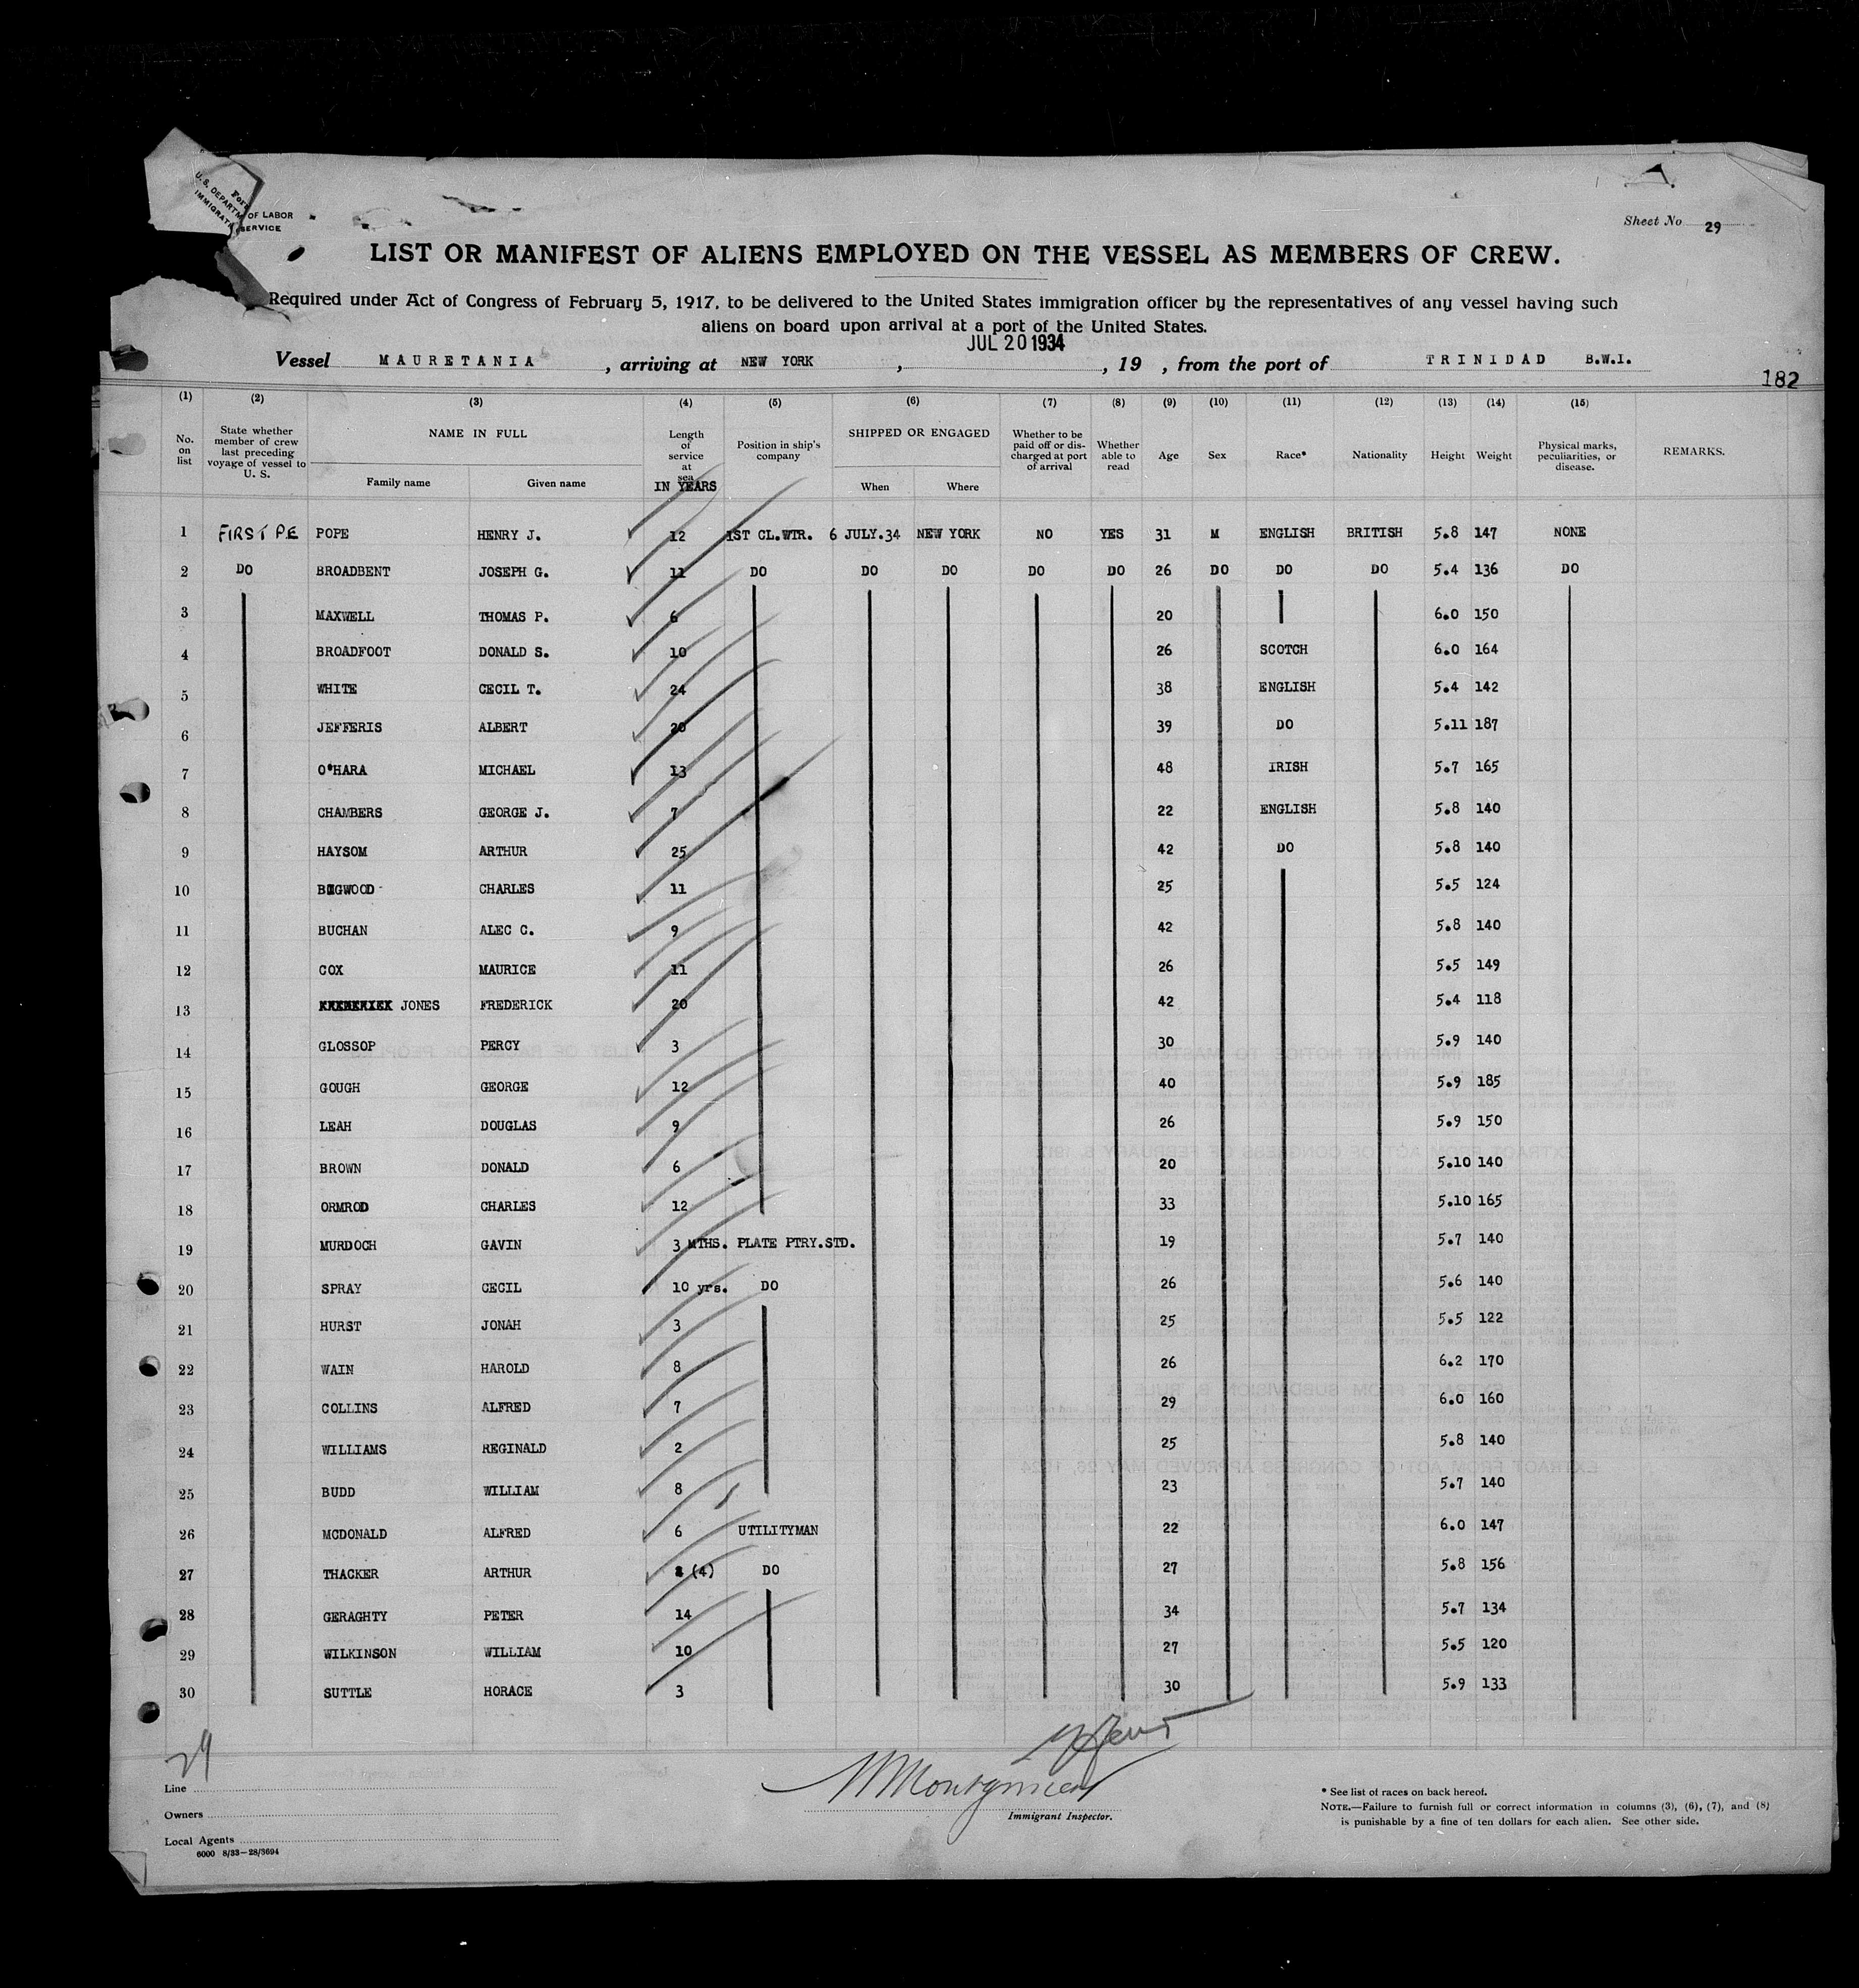 Form
U. S. DEPARTM OF LABOR
IMMIGRAT SERVICE
Sheet No 29
LIST OR MANIFEST OF ALIENS EMPLOYED ON THE VESSEL AS MEMBERS OF CREW.
Required under Act of Congress of February 5, 1917, to be delivered to the United States immigration officer by the representatives of any vessel having such
aliens on board upon arrival at a port of the United States.
JUL 20 1934
Vessel MAURETANIA, arriving at NEW YORK, , 19 , from the port of TRINIDAD B.W.I.
182
(1) (2) (3) (4) (5) (6) (7) (8) (9) (10) (11) (12) (13) (14) (15)
No. on list State whether member of crew last preceding voyage of vessel to U. S. NAME IN FULL Family name Given name Length of service at sea IN YEARS Position in ship's company SHIPPED OR ENGAGED When Where Whether to be paid off or discharged at port of arrival Whether able to read Age Sex Race* Nationality Height Weight Physical marks, peculiarities, or disease. REMARKS.
1 FIRST P.E POPE HENRY J. 12 1ST CL.WTR. 6 JULY.34 NEW YORK NO YES 31 M ENGLISH BRITISH 5.8 147 NONE
2 DO BROADBENT JOSEPH G. 11 DO DO DO DO DO 26 DO DO DO 5.4 136 DO
3 MAXWELL THOMAS P. 6 20 6.0 150
4 BROADFOOT DONALD S. 10 26 SCOTCH 6.0 164
5 WHITE CECIL T. 24 38 ENGLISH 5.4 142
6 JEFFERIS ALBERT 20 39 DO 5.11 187
7 O'HARA MICHAEL 13 48 IRISH 5.7 165
8 CHAMBERS GEORGE J. 7 22 ENGLISH 5.8 140
9 HAYSOM ARTHUR 25 42 DO 5.8 140
10 BIGWOOD CHARLES 11 25 5.5 124
11 BUCHAN ALEC C. 9 42 5.8 140
12 COX MAURICE 11 26 5.5 149
13 JONES FREDERICK 20 42 5.4 118
14 GLOSSOP PERCY 3 30 5.9 140
15 GOUGH GEORGE 12 40 5.9 185
16 LEAH DOUGLAS 9 26 5.9 150
17 BROWN DONALD 6 20 5.10 140
18 ORMROD CHARLES 12 33 5.10 165
19 MURDOCH GAVIN 3 MTHS. PLATE PTRY.STD. 19 5.7 140
20 SPRAY CECIL 10 yrs. DO 26 5.6 140
21 HURST JONAH 3 25 5.5 122
22 WAIN HAROLD 8 26 6.2 170
23 COLLINS ALFRED 7 29 6.0 160
24 WILLIAMS REGINALD 2 25 5.8 140
25 BUDD WILLIAM 8 23 5.7 140
26 MCDONALD ALFRED 6 UTILITYMAN 22 6.0 147
27 THACKER ARTHUR (4) DO 27 5.8 156
28 GERAGHTY PETER 14 34 5.7 134
29 WILKINSON WILLIAM 10 27 5.5 120
30 SUTTLE HORACE 3 30 5.9 133
29
Line
Owners
Local Agents
6000 8/33-28/3694
Immigrant Inspector.
* See list of races on back hereof.
NOTE.—Failure to furnish full or correct information in columns (3), (6), (7), and (8)
is punishable by a fine of ten dollars for each alien. See other side.